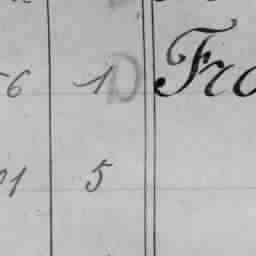 6 1 D Fro
1 5